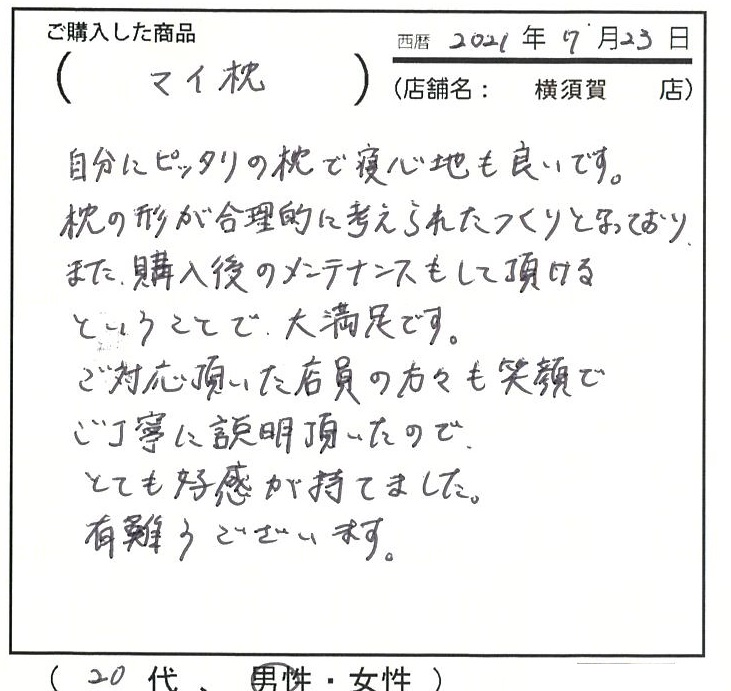 ご購入した商品
西暦 2021 年 7 月 23 日
( マイ枕 )
(店舗名: 横須賀 店)
自分にピッタリの枕で寝心地も良いです。
枕の形が合理的に考えられたつくりとなっており、
また、購入後のメンテナンスもして頂ける
ということで、大満足です。
ご対応頂いた店員の方々も笑顔で
ご丁寧に説明頂いたので、
とても好感が持てました。
有難うございます。
( 20 代 、 男性・女性 )